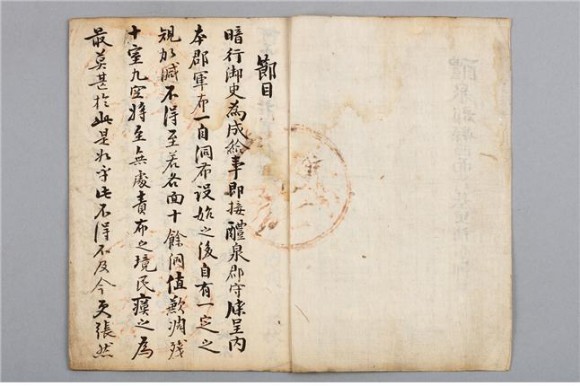 節目
暗行御史為成給事即接醴泉郡守牒呈內
本郡軍布一自洞布設始之後自有一定之
規加減不得至若各面十餘洞值歉凋残
十室九空將至無處責布之境民瘼之為
最莫甚於此是如乎此不得不及今更張然